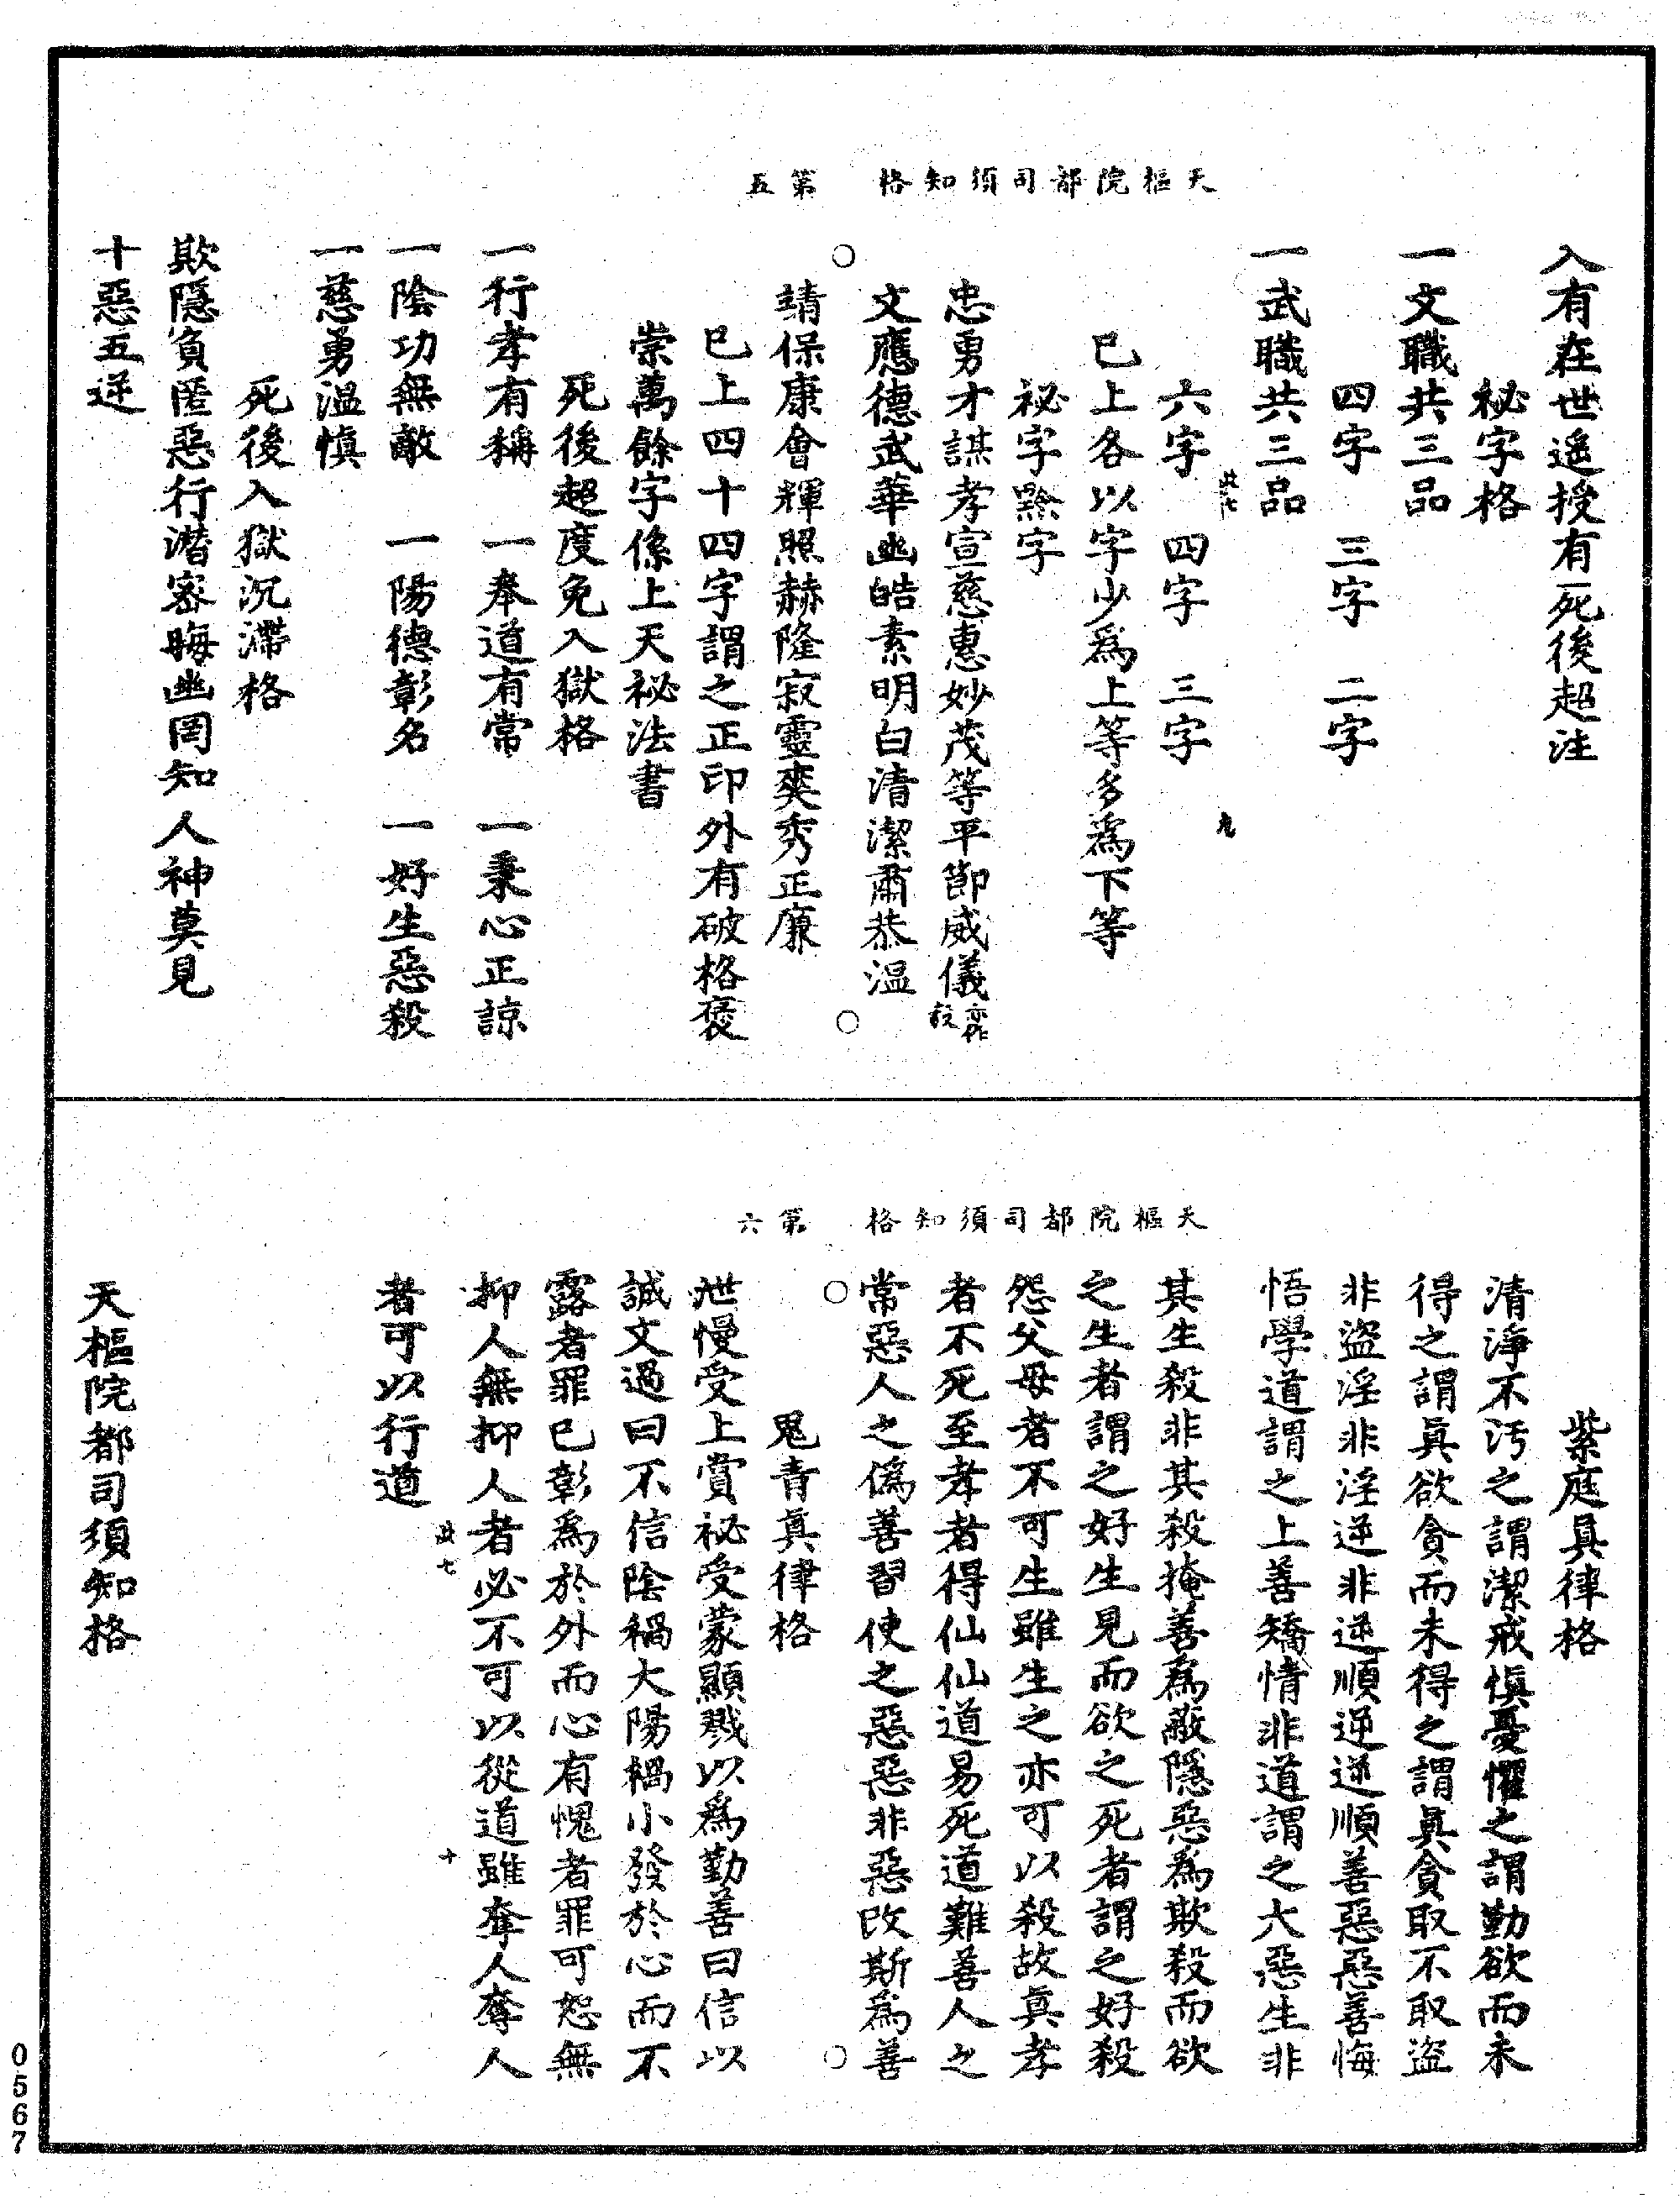 天樞院都司須知格　第五
入有在世遥授有死後超注
秘字格
一文職共三品
四字　三字　二字
一武職共三品
六字　四字　三字
已上各以字少爲上等多爲下等
祕字黔字
忠勇才謀孝宣慈惠妙茂等平節威儀亦作毅
文應德武華幽皓素明白清潔肅恭温
靖保康會輝照赫隆寂靈奕秀正廉
已上四十四字謂之正印外有破格褒
崇萬餘字係上天祕法書
死後超度免入獄格
一行孝有稱　一奉道有常　一秉心正諒
一陰功無敵　一陽德彰名　一好生惡殺
一慈勇温慎
死後入獄沉滯格
欺隱負匿惡行潛密晦幽罔知人神莫見
十惡五逆
天樞院都司須知格　第六
紫庭真律格
清淨不汚之謂潔戒慎憂懼之謂勤欲而未
得之謂真欲貪而未得之謂真貪取不取盜
非盜淫非淫逆非逆順逆逆順善惡惡善悔
悟學道謂之上善矯情非道謂之大惡生非
其生殺非其殺掩善爲蔽隱惡爲欺殺而欲
之生者謂之好生見而欲之死者謂之好殺
怨父母者不可生雖生之亦可以殺故真孝
者不死至孝者得仙仙道易死道難善人之
常惡人之僞善習使之惡惡非惡改斯爲善
鬼青真律格
泄慢受上賞祕受蒙顯戮以爲勤善曰信以
誠文過曰不信陰禍大陽禍小發於心而不
露者罪已彰爲於外而心有愧者罪可恕無
抑人無抑人者必不可以從道雖奪人奪人
者可以行道
天樞院都司須知格
0567